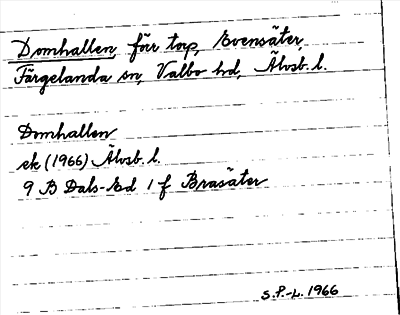 Domhallen, för torp, Evensäter,
Färgelanda sn, Valbo hd, Älvsb. l.
Domhallen
ek (1966) Älvsb. l.
9 B Dals-Ed 1 f Brasäter
S.P.-L. 1966